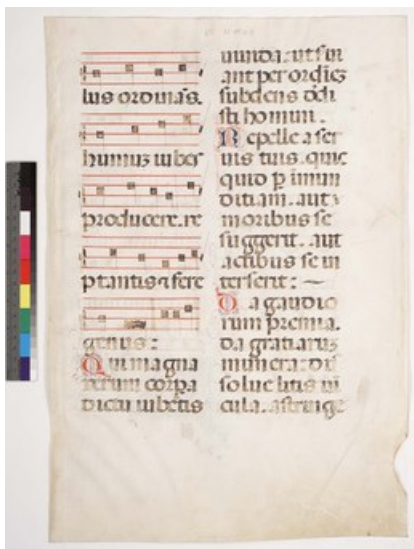 lus ordinans.
humuz iubes
producere. re
ptantis ⁊ fere
genus:
Qui magna
rerum corpa
dictu iubetis
uiuida. ut ſui
ant per ordiez
subdens dedi
sti homini.
Repelle a ser
uis tuis. quic
quid p̄ imun
ditiam. aut
moribus se
suggerit. aut
actibus se in
terserit: ~
Da gaudio
rum premia.
da gratiaruz
munera: diſ
solue litis ui
cula. astringe